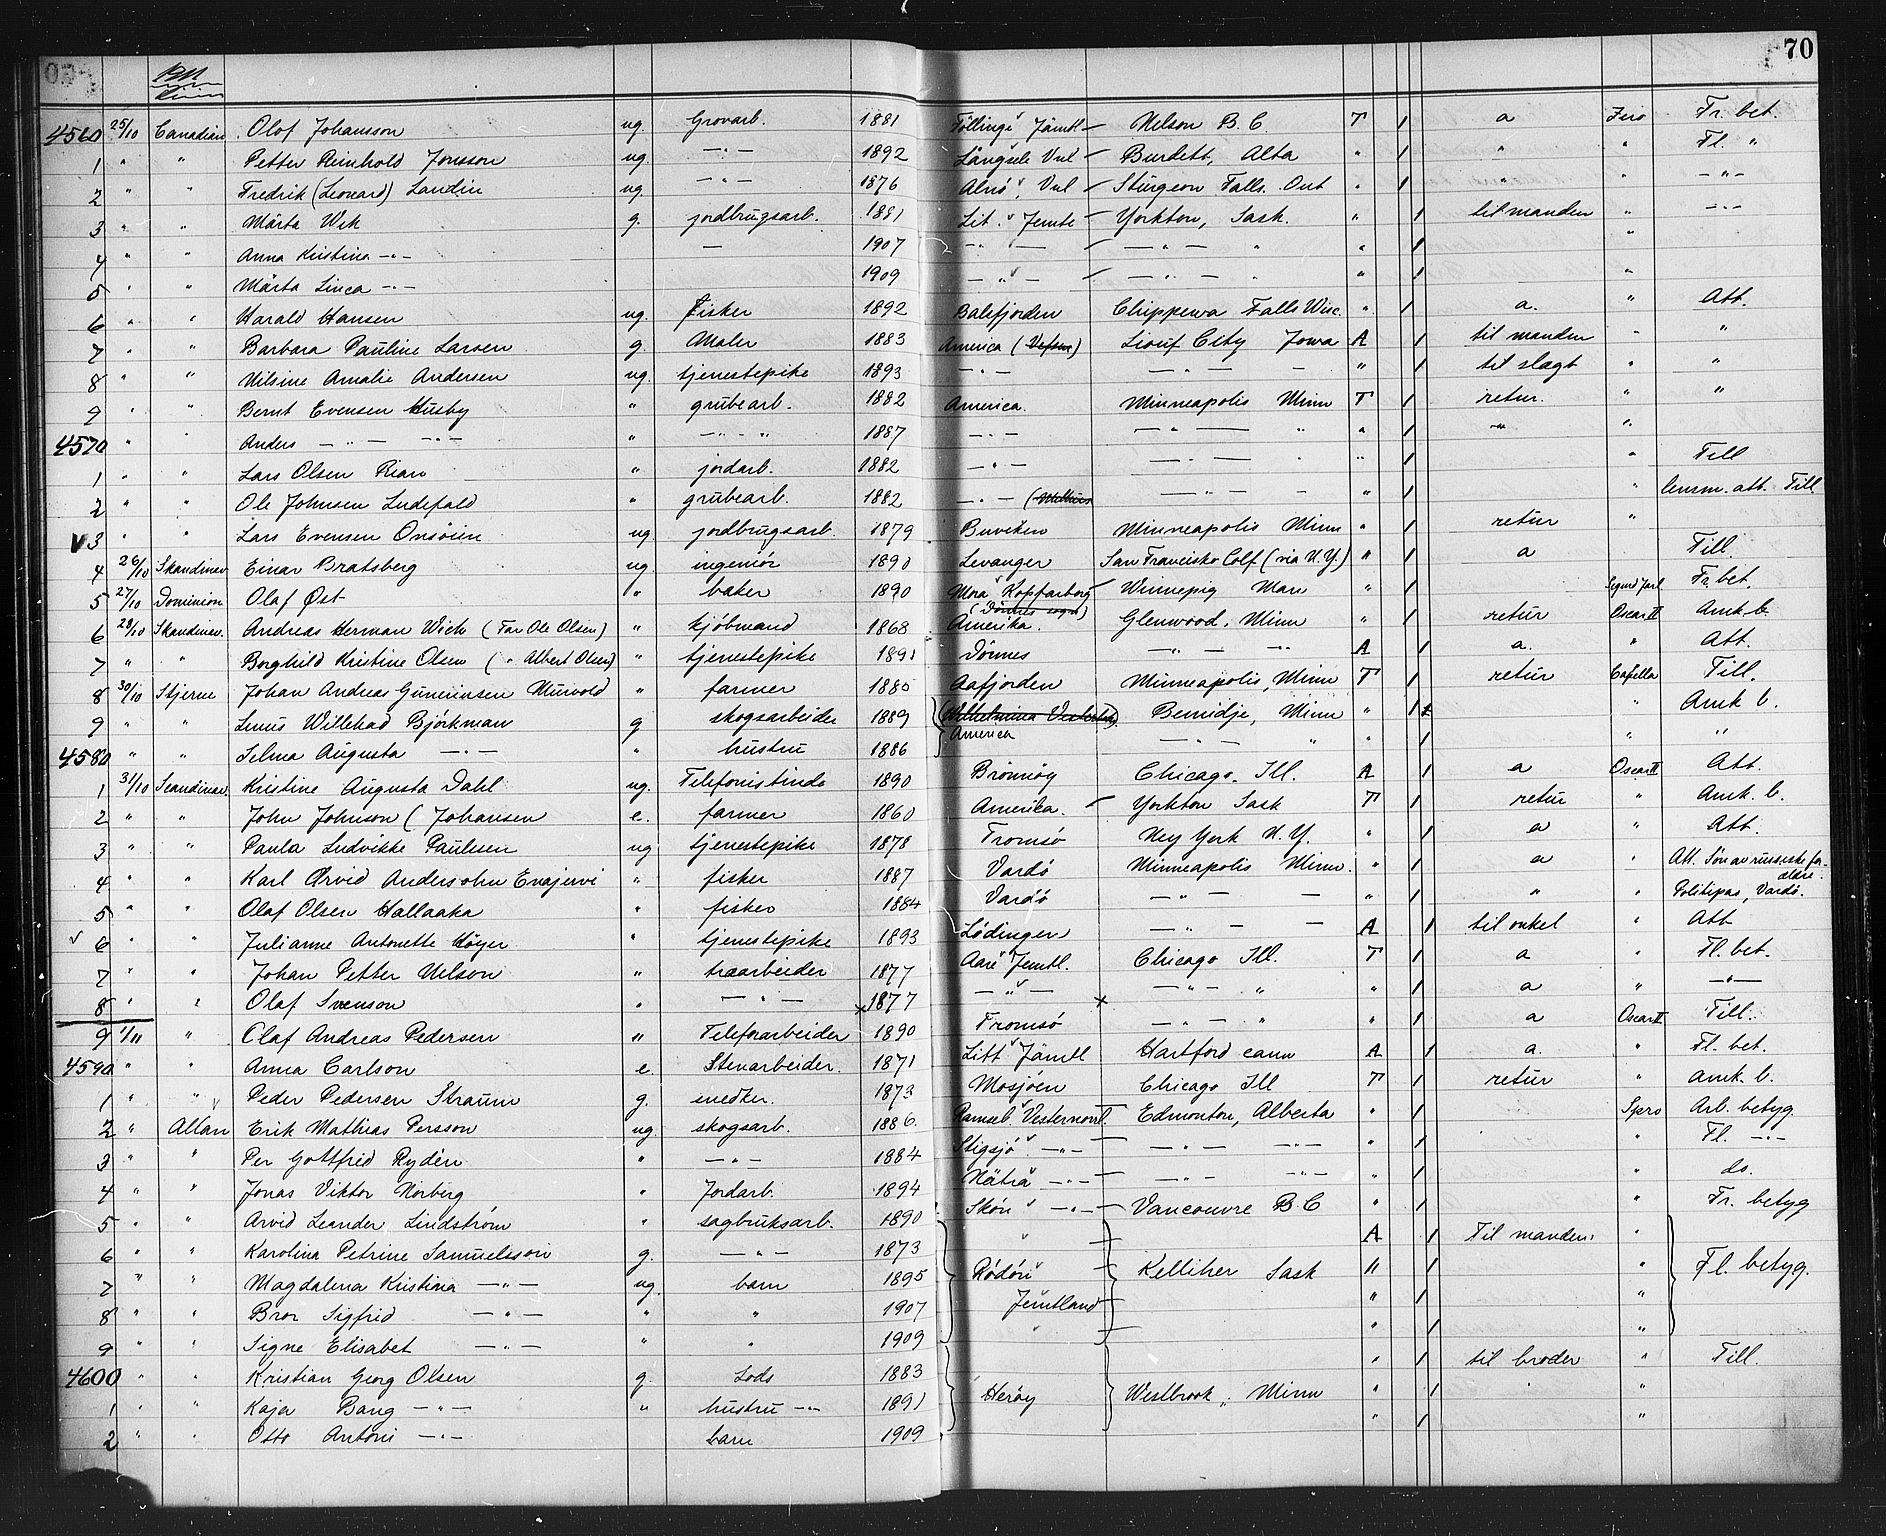 70
4560 25/10 Canadian Olof Johansson ug. Grovarb. 1881 Föllinge Jämtl Nelson B. C. T 1 a Zero Fr. bet.
1 " " Petter Reinhold Jonsson ug. — " — 1892 Långsele Vnl Burdett, Alta " 1 " " Fl. "
2 " " Fredrik (Leonard) Landin ug. — " — 1876 Alnö, Vnl Sturgeon Falls. Ont " 1 " " — " —
3 " " Märta Wik g. jordbrugsarb. 1881 Lit. Jemtl Yorkton, Sask. " 1 til manden " — " —
4 " " Anna Kristina — " — — 1907 — " — — " — " " 1 "
5 " " Märta Linea — " — 1909 — " — — " — " " 1 "
6 " " Harald Hansen ug. fisker 1892 Balsfjorden Chippewa Falls Wisc. " 1 a. " Att.
7 " " Barbara Pauline Larsen g. Maler 1883 America (Vefsen) Sioux City Iowa A 1 til manden " "
8 " " Nilsine Amalie Andersen ug. tjenestepike 1893 — " — — " — " 1 til slægt " "
9 " " Bernt Evensen Husby " grubearb. 1882 America. Minneapolis Minn T 1 retur. " "
4570 " " Anders — " — — " — " — " — " 1887 — " — — " — " " 1 " "
1 " " Lars Olsen Rian " jordarb. 1882 — " — — " — " " 1 " Till
2 " " Ole Johnsen Ludefald " grubearb. 1882 — " — (Melhus — " — " 1 " lensm. att. Till
V 3 " " Lars Evensen Onsöien ug. jordbrugsarb. 1879 Buviken Minneapolis Minn " 1 retur "
4 26/10 Skandinav. Einar Bratsberg ug. ingeniör 1890 Levanger San Francisko Calf (via N.Y.) " 1 a Till
5 27/10 Dominion Olaf Öst " baker 1890 Mora Kopparberg Winnepig Man " 1 Sigurd Jarl Fr. bet.
6 28/10 Skandinav. Andreas Herman Wich (Far Ole Olsen) " kjöbmand 1868 (Dönnes sogn) Amerika. Glenwood, Minn " 1 retur Oscar II Amk. b.
7 " " Borghild Kristine Olsen ( " Albert Olsen) " tjenestepike 1891 Dönnes — " — " A 1 a. " Att.
8 30/10 Stjerne Johan Andreas Gunerinsen Murvold " farmer 1885 Aafjorden Minneapolis, Minn T 1 retur Capella Till.
9 " " Linus Willehad Björkman g skogsarbeider 1889 (Wilhelmina Vesterbot) Bemidje, Minn " 1 " Amk b.
4580 " " Selma Augusta — " — " hustru 1886 America — " — " " 1 " "
1 31/10 Scandinav. Kristine Augusta Dahl ug. Telefonistinde 1890 Brönnöy Chicago. Ill. A 1 a Oscar II Att.
2 " " John Johnson ( Johansen e. farmer 1860 Amerika. Yorkton Sask T 1 retur " Amk. b.
3 " " Paula Ludvikke Paulsen ug tjenestepike 1878 Tromsö Ney York N. Y. " 1 a " Att.
4 " " Karl Arvid Andersohn Enajervi " fisker 1887 Vardö Minneapolis Minn. " 1 a " Att. Sön av russiske forældre.
5 " " Olaf Olsen Hallaaka " fisker 1884 Vardö — " — — " 1 " " Politipas, Vardö.
6 " " Julianne Antonette Höyer " tjenestepike 1893 Lödingen — " — — A 1 til onkel " Att
7 " " Johan Petter Nelson " træarbeider 1877 Aare Jemtl. Chicago Ill. T 1 a " Fl. bet.
8 " " Olaf Svenson " — " — 1877 — " — — " — " " 1 a " — " —
9 1/11 " Olaf Andreas Pedersen " Telefonarbeider 1890 Tromsö — " — " " 1 a Oscar II Till.
4590 " " Anna Carlson e. Stenarbeider. 1871 Litt Jämtl Hartford conn A 1 a. " Fl. bet.
1 " " Peder Pedersen Straum g. snedker. 1873 Mosjöen Chicago Ill T 1 retur " amk. b.
2 " Allan Erik Mathias Persson ug. skogsarb. 1886. Ramsel Vesternorrl. Edmonton, Alberta " 1 Spro Arb. betyg
3 " " Per Gottfrid Rydén " — " — 1884 Stigsjö — " — — " — — " — " 1 " Fl. — " —
4 " " Jonas Viktor Norberg " Jordarb. 1894 Nätra — " — — " — — " — " 1 " do.
5 " " Arvid Leander Lindström " sagbruksarb. 1890 Skön — " — Vancouvre B. C " 1 " Fr. betyg
6 " " Karolina Petrine Samuelsson g. — " — 1873 " A 1 Til manden. "
7 " " Magdalena Kristina — " — ug. barn 1895 Rödön Kelliher Sask " 1 " Fl. betyg.
8 " " Bror Sigfrid — " — " " 1907 Jemtland " 1 "
9 " " Signe Elisabet — " — " " 1909 " " 1 "
4600 " " Kristian Georg Olsen g. Lods 1883 " 1 til broder " Till.
1 " " Kaja Bang — " — " hustru — " — 1891 Heröy Westbrook, Minn " 1 " "
2 " " Otto Antoni — " — barn 1909 " 1 "